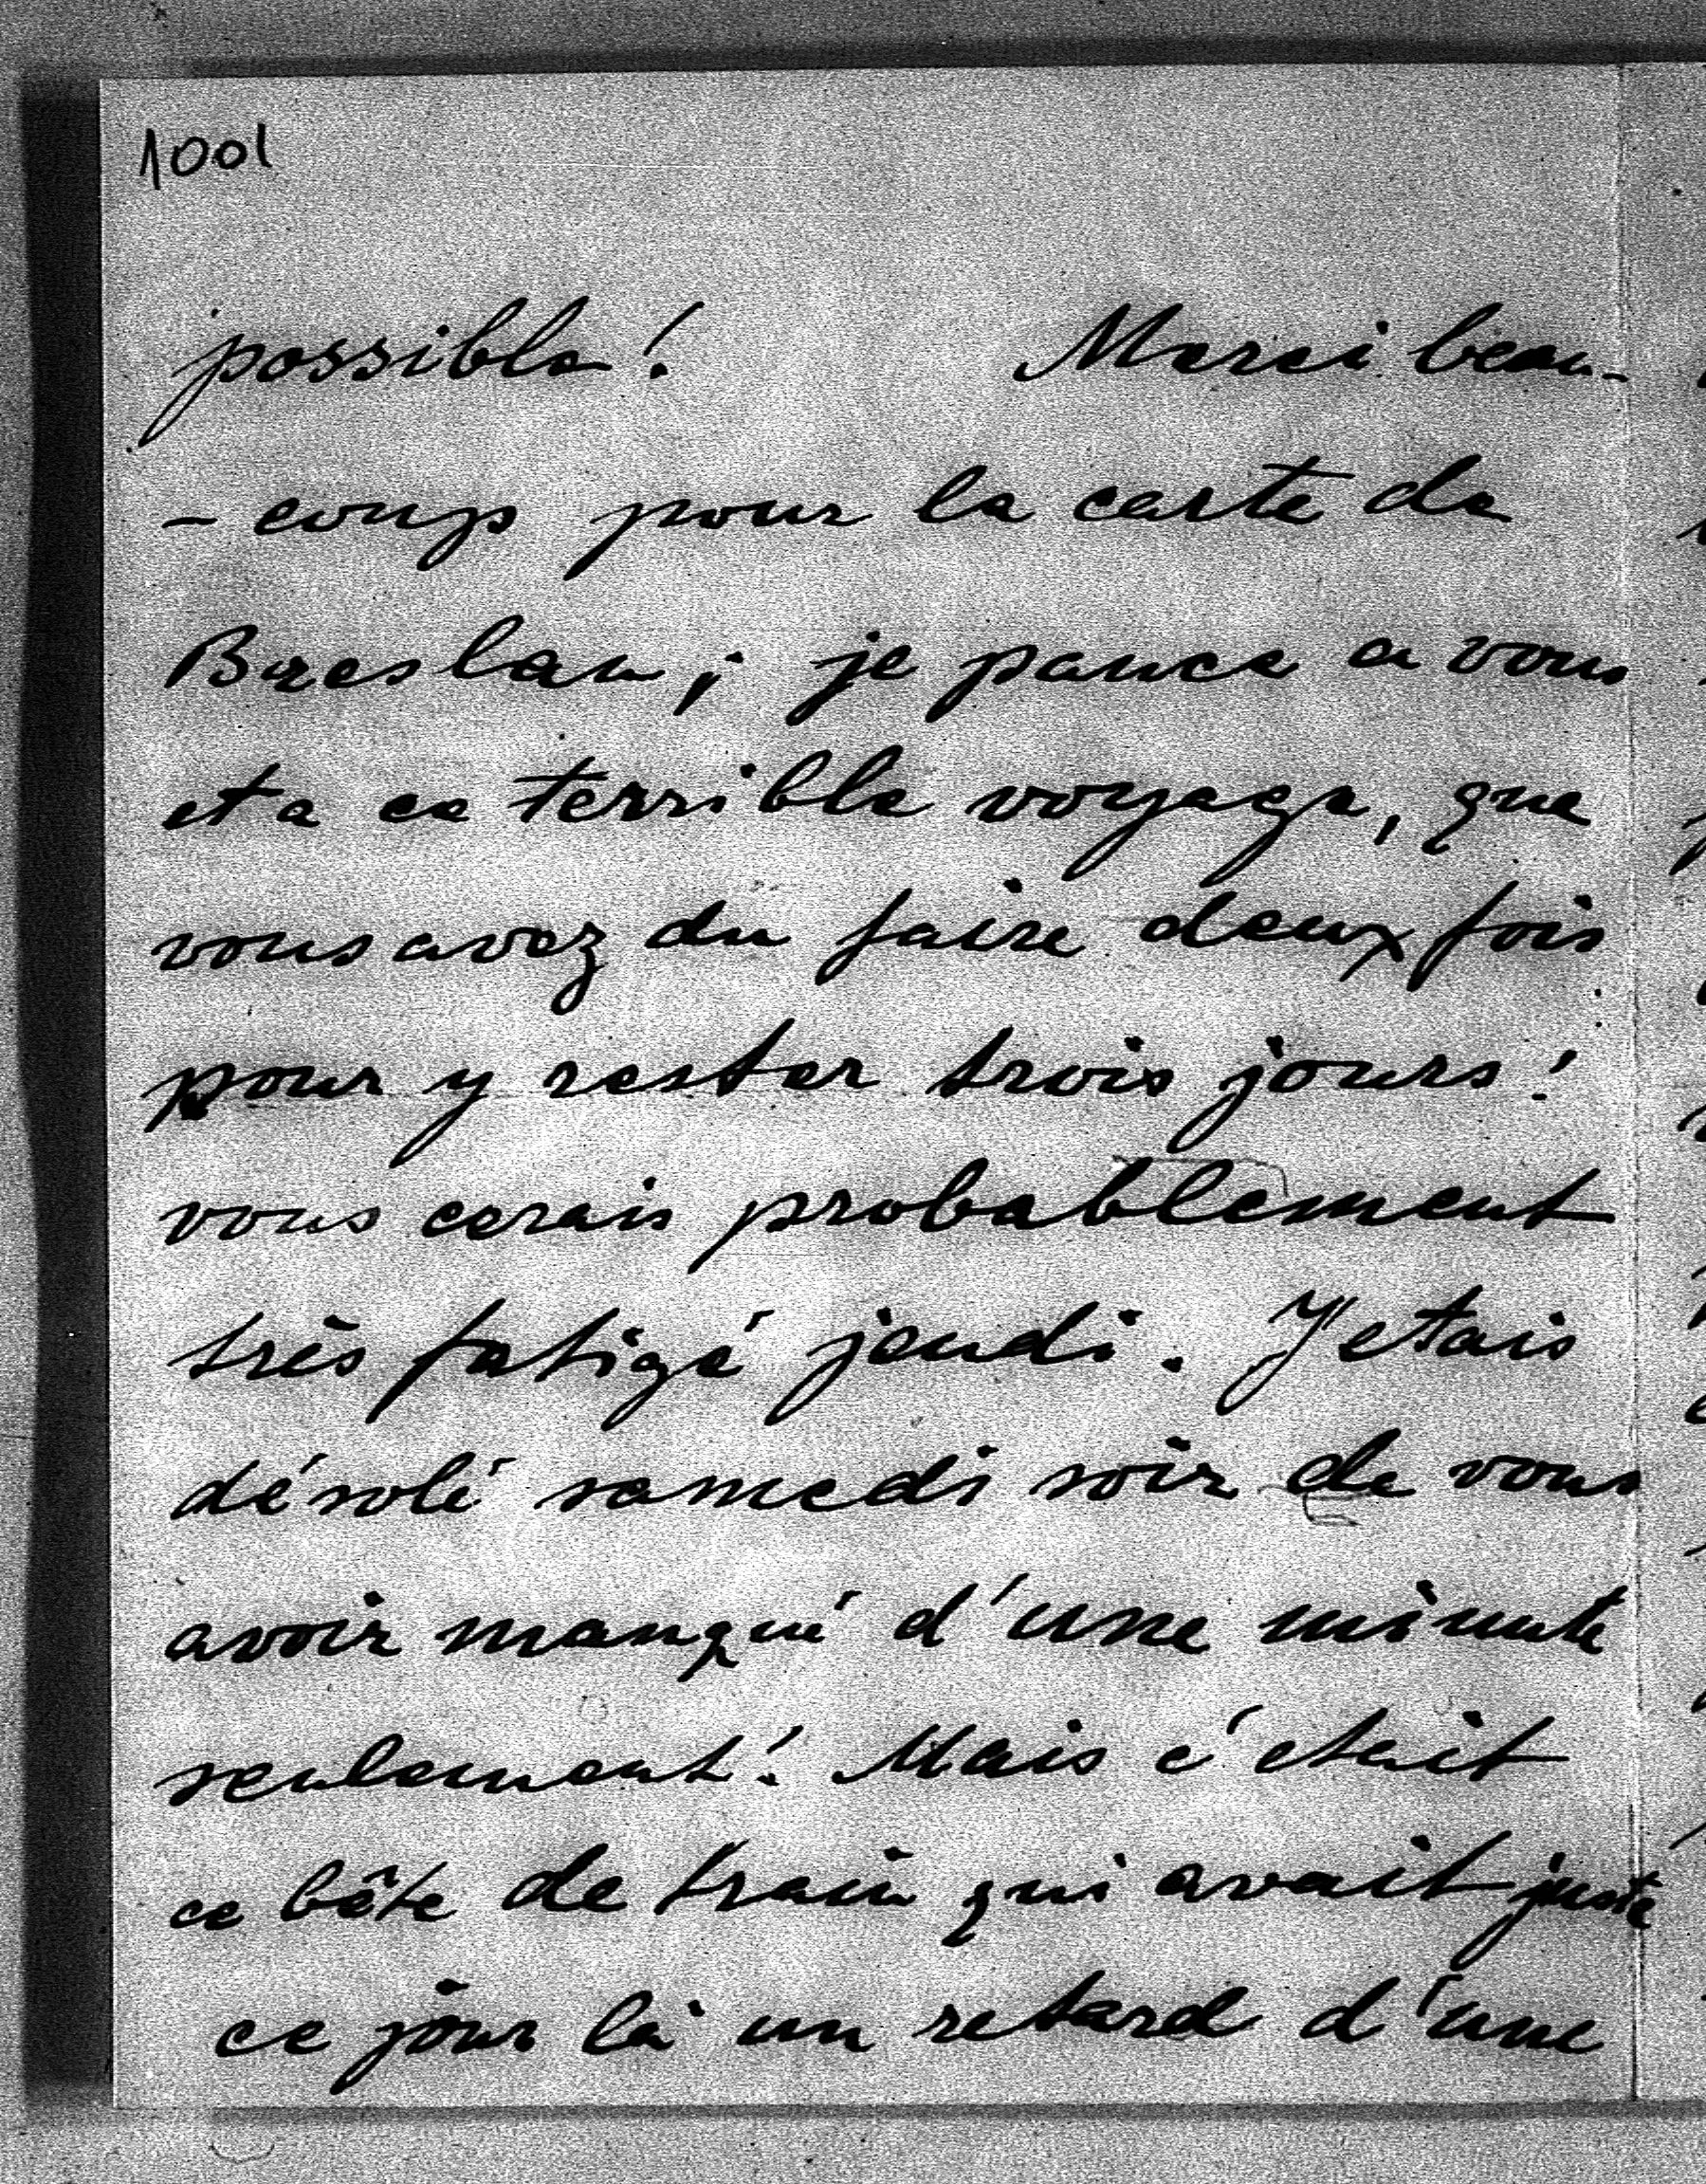 1001
possible! Merci beau-
- coup pour la carte de
Breslau; je pance a vous
et a ce terrible voyage, que
vous avez du faire deux fois
pour y rester trois jours!
vous cerais probablement
très fatigé jeudi. J'etais
désolé samedi soir de vous
avoir manqué d'une minute
seulement! Mais c'etait
ce bête de train qui avait juste
ce jour là un retard d'une